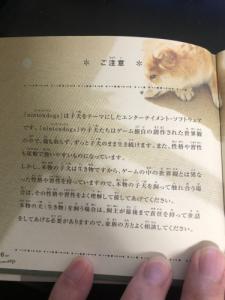 ご注意
「nintendogs」は子犬をテーマにしたエンターテイメント・ソフトウェア
です。「nintendogs」の子犬たちはゲーム独自の創作された世界観
の中で、歳も取らず、ずっと子犬のまま生き続けます。また、性格や習性
も従順で扱いやすいものになっています。
しかし、本物の子犬は生き物ですから、ゲームの中の世界観とは異な
った性格や習性を持っていますので、本物の子犬を飼って触れ合う場
合は、その性格や習性をよく理解して接してあげてください。
本物の犬(生き物)を飼う場合は、飼主が最後まで責任を持って世話
をしてあげる必要がありますので、家族の方とよく相談してください。
6